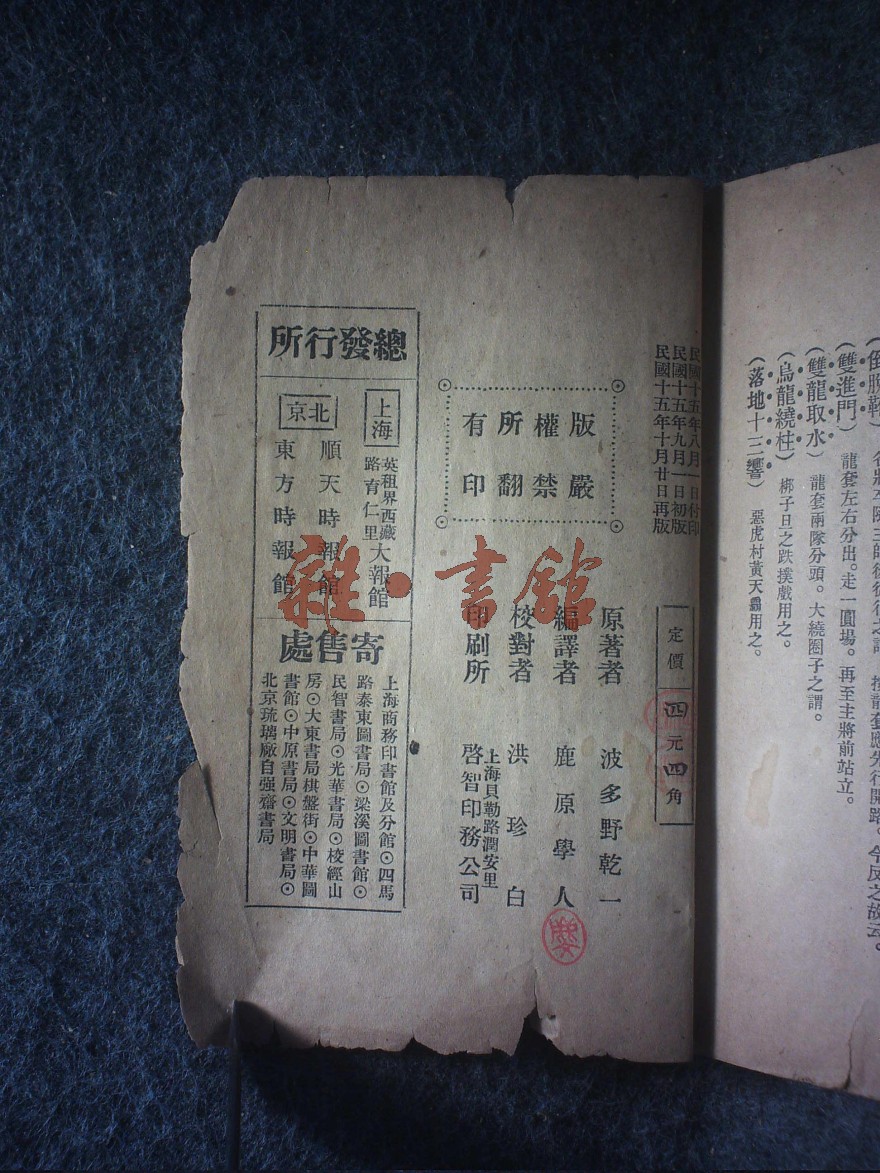 雙進門）　龍套左右分出。走一圓場。再至主將前站立。
（雙龍取水）　龍套兩隊分頭。大繞圈子之謂。
（烏龍繞柱）　梆子旦之跌撲戲用之。
（落地十三響）　惡虎村黃天霸用之。
民國十五年八月　日付印
民國十五年九月　日初版
民國十五年十月廿日再版
定價四元四角
版權所有
嚴禁翻印
原著者　波多野乾一
編譯者　鹿原學人
校對者　洪珍白
印刷所　上海貝勒路潤安里
啓智印務公司
總發行所
上海
英租界西藏
路育仁里
大報館
北京
順天時報館
東方時報館
寄售處
上海商務印書館及分館⊙四馬
路泰東圖書局⊙梁溪圖書館⊙
民智書局⊙光華書局⊙校經山
房⊙大東書局棋盤街⊙中華圖
書館⊙中原書局⊙文明書局⊙
北京琉璃廠自强齋書局
雜·書館